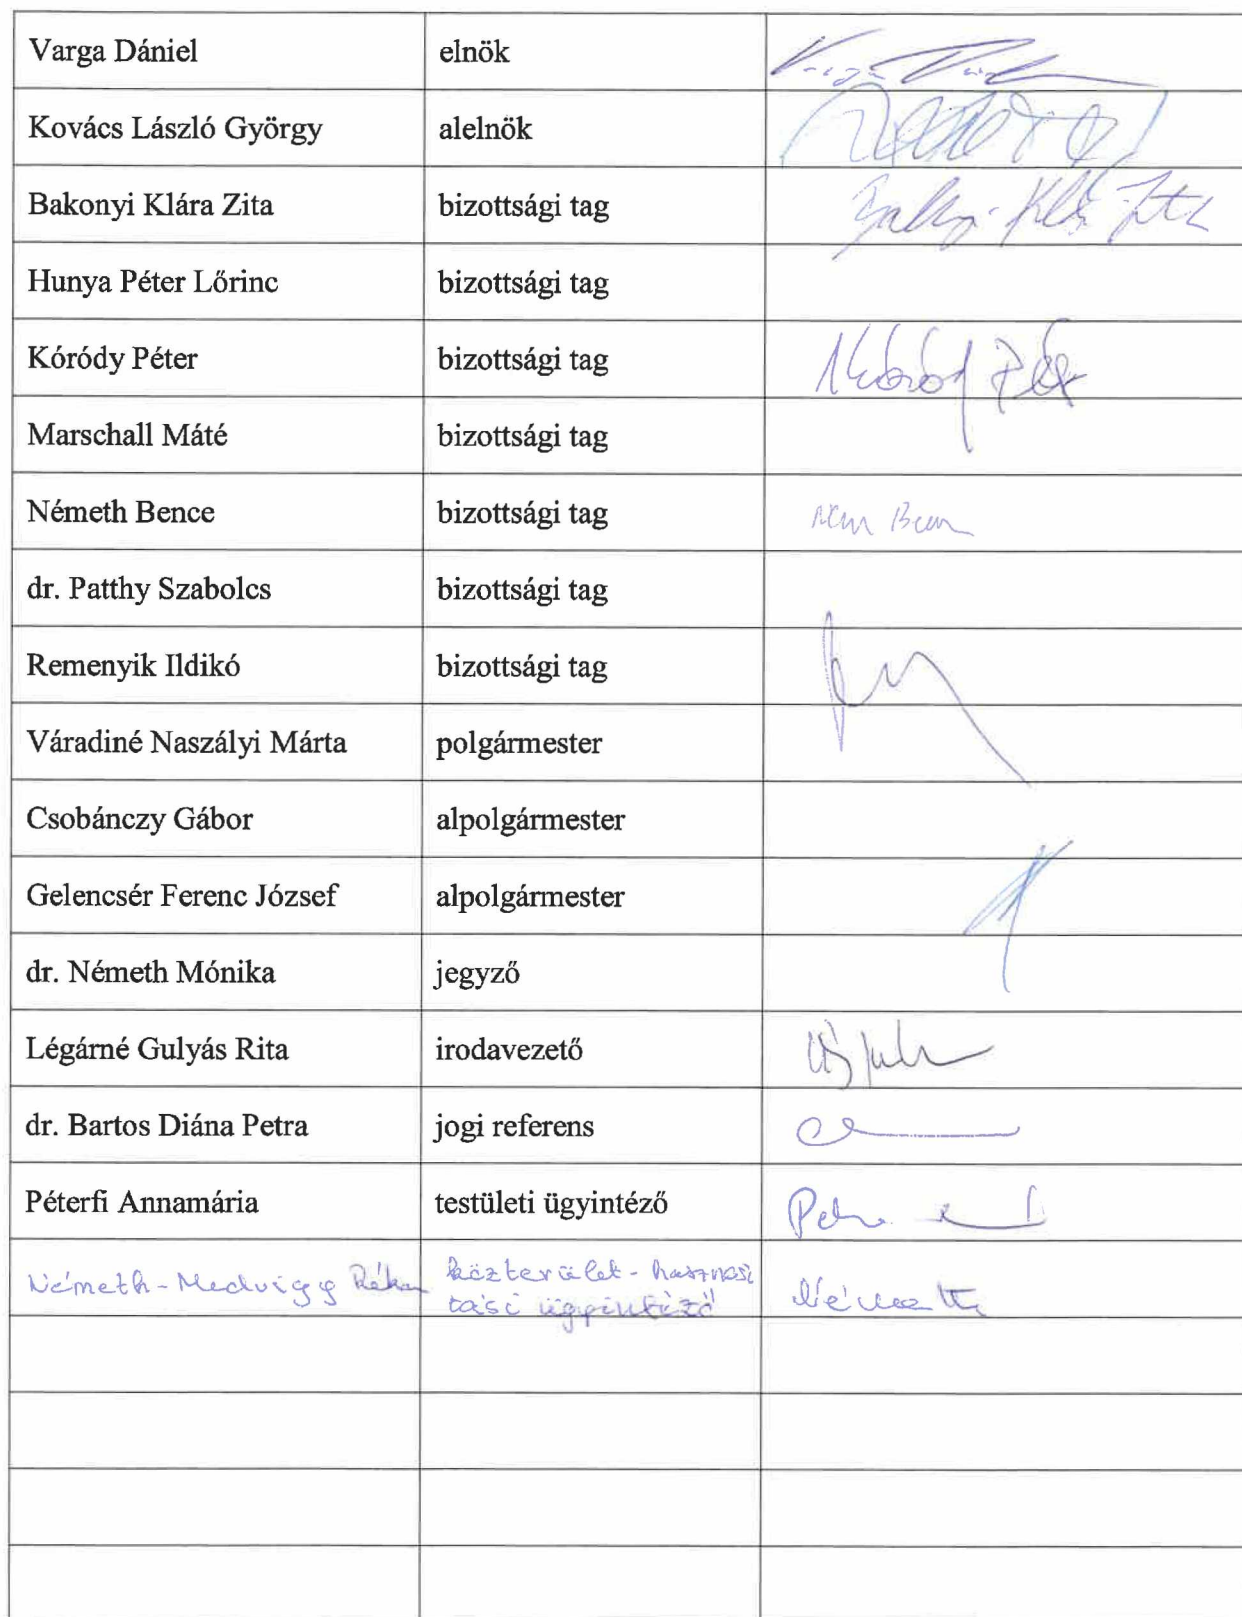 Varga Dániel elnök
Kovács László György alelnök
Bakonyi Klára Zita bizottsági tag
Hunya Péter Lőrinc bizottsági tag
Kóródy Péter bizottsági tag Kóródy Péter
Marschall Máté bizottsági tag
Németh Bence bizottsági tag
dr. Patthy Szabolcs bizottsági tag
Remenyik Ildikó bizottsági tag
Váradiné Naszályi Márta polgármester
Csobánczy Gábor alpolgármester
Gelencsér Ferenc József alpolgármester
dr. Németh Mónika jegyző
Légárné Gulyás Rita irodavezető
dr. Bartos Diána Petra jogi referens
Péterfi Annamária testületi ügyintéző
Németh-Medvigy Réka közterület-hasznosí
tási ügyintéző Németh